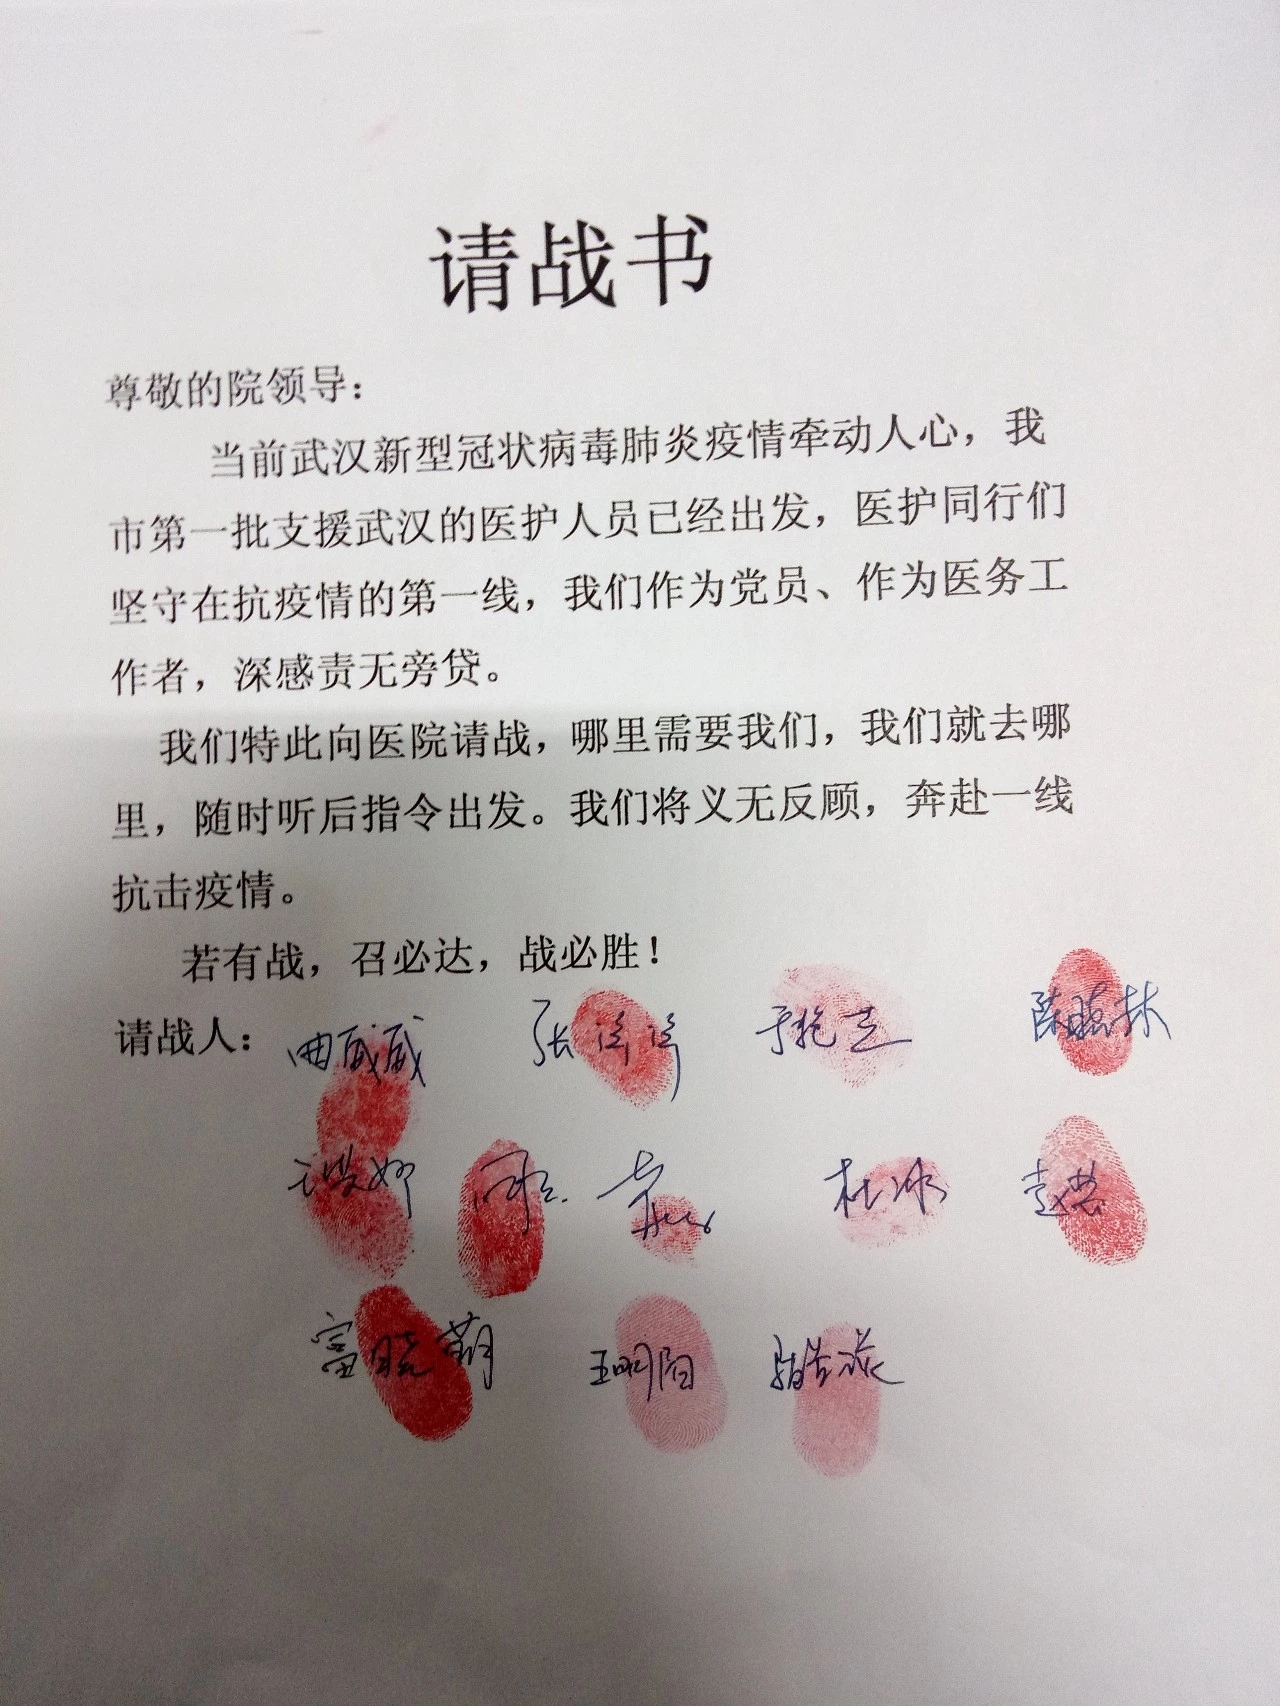 请战书
尊敬的院领导：
当前武汉新型冠状病毒肺炎疫情牵动人心，我
市第一批支援武汉的医护人员已经出发，医护同行们
坚守在抗疫情的第一线，我们作为党员、作为医务工
作者，深感责无旁贷。
我们特此向医院请战，哪里需要我们，我们就去哪
里，随时听后指令出发。我们将义无反顾，奔赴一线
抗击疫情。
若有战，召必达，战必胜！
请战人：曲威威 陈曦林
杜冰
富晓萌 王明阳